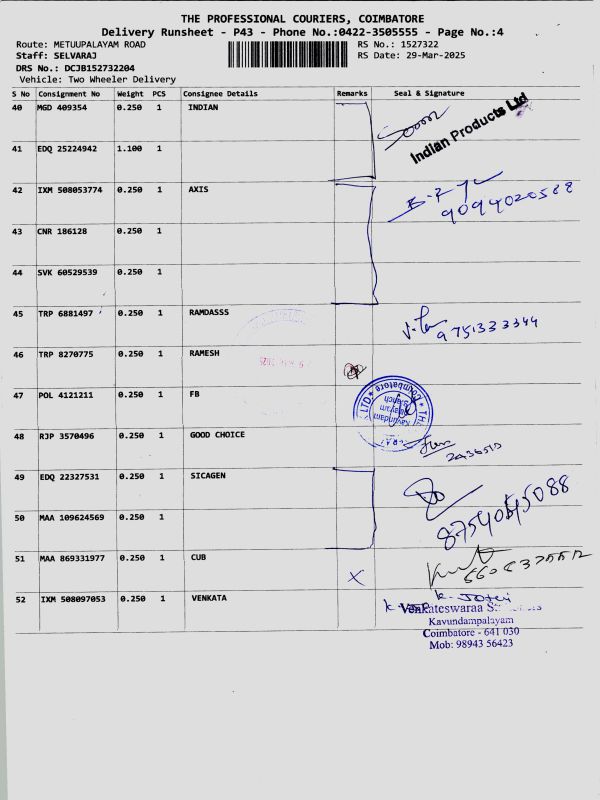 THE PROFESSIONAL COURIERS, COIMBATORE
Delivery Runsheet - P43 - Phone No.:0422-3505555 - Page No.:4
Route: METUUPALAYAM ROAD
RS No.: 1527322
Staff: SELVARAJ
RS Date: 29-Mar-2025
DRS No.: DCJB152732204
Vehicle: Two Wheeler Delivery
S No Consignment No Weight PCS Consignee Details Remarks Seal & Signature
40 MGD 409354 0.250 1 INDIAN
Indian Products Ltd
41 EDQ 25224942 1.100 1
42 IXM 508053774 0.250 1 AXIS
9094020588
43 CNR 186128 0.250 1
44 SVK 60529539 0.250 1
45 TRP 6881497 0.250 1 RAMDASSS
9751333344
46 TRP 8270775 0.250 1 RAMESH
47 POL 4121211 0.250 1 FB
Coimbatore
Kavundam
48 RJP 3570496 0.250 1 GOOD CHOICE
49 EDQ 22327531 0.250 1 SICAGEN
50 MAA 109624569 0.250 1
51 MAA 869331977 0.250 1 CUB X
52 IXM 508097053 0.250 1 VENKATA
Kavundampalayam
Coimbatore - 641 030
Mob: 98943 56423